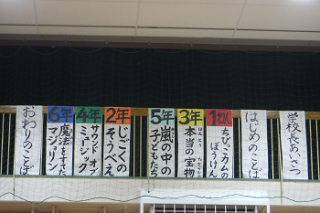 学校長あいさつ
はじめのことば
1年
ちびっこカムのぼうけん
3年
本当の宝物
2年
じごくのそうべえ
4年
サウンド オブ ミュージック
5年
嵐の中の子どもたち
6年
魔法をすてたマジョリン
おわりのことば